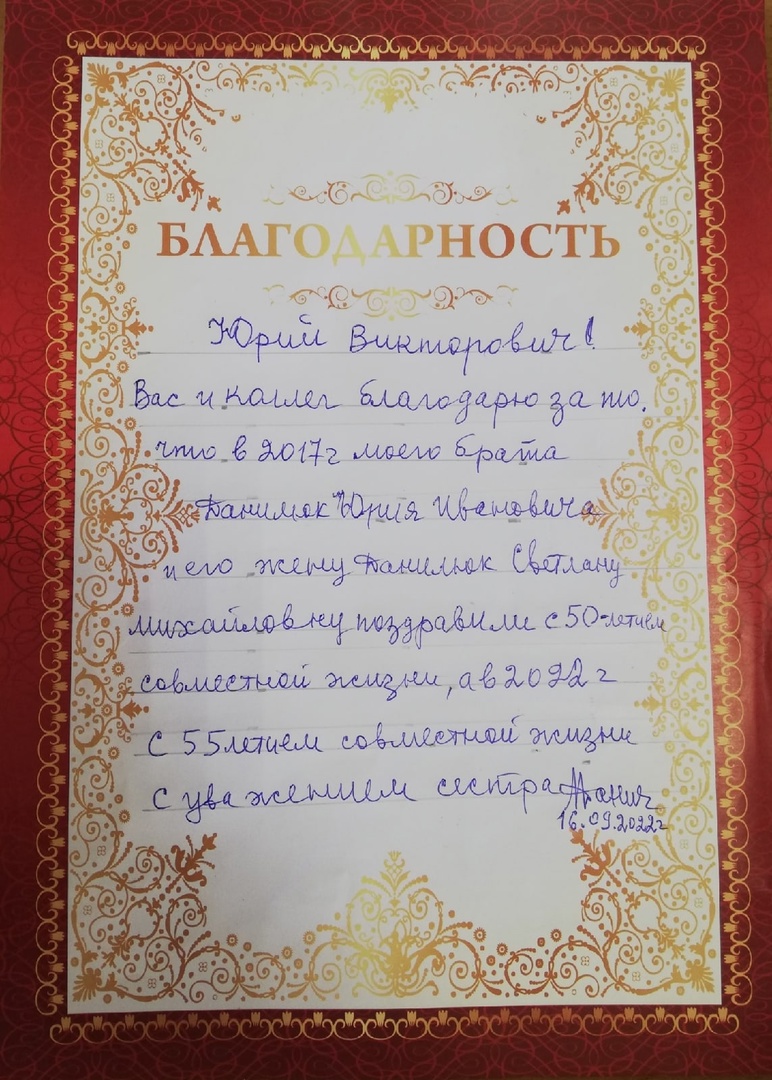 БЛАГОДАРНОСТЬ
Юрий Викторович!
Вас и коллег благодарю за то.
что в 2017г моего брата
Данилюк Юрия Ивановича
и его жену Данилюк Светлану
михайловну поздравили с 50-летием
совместной жизни, а в 2022 г
с 55летием совместной жизни
с уважением сестра
16.09.2022г